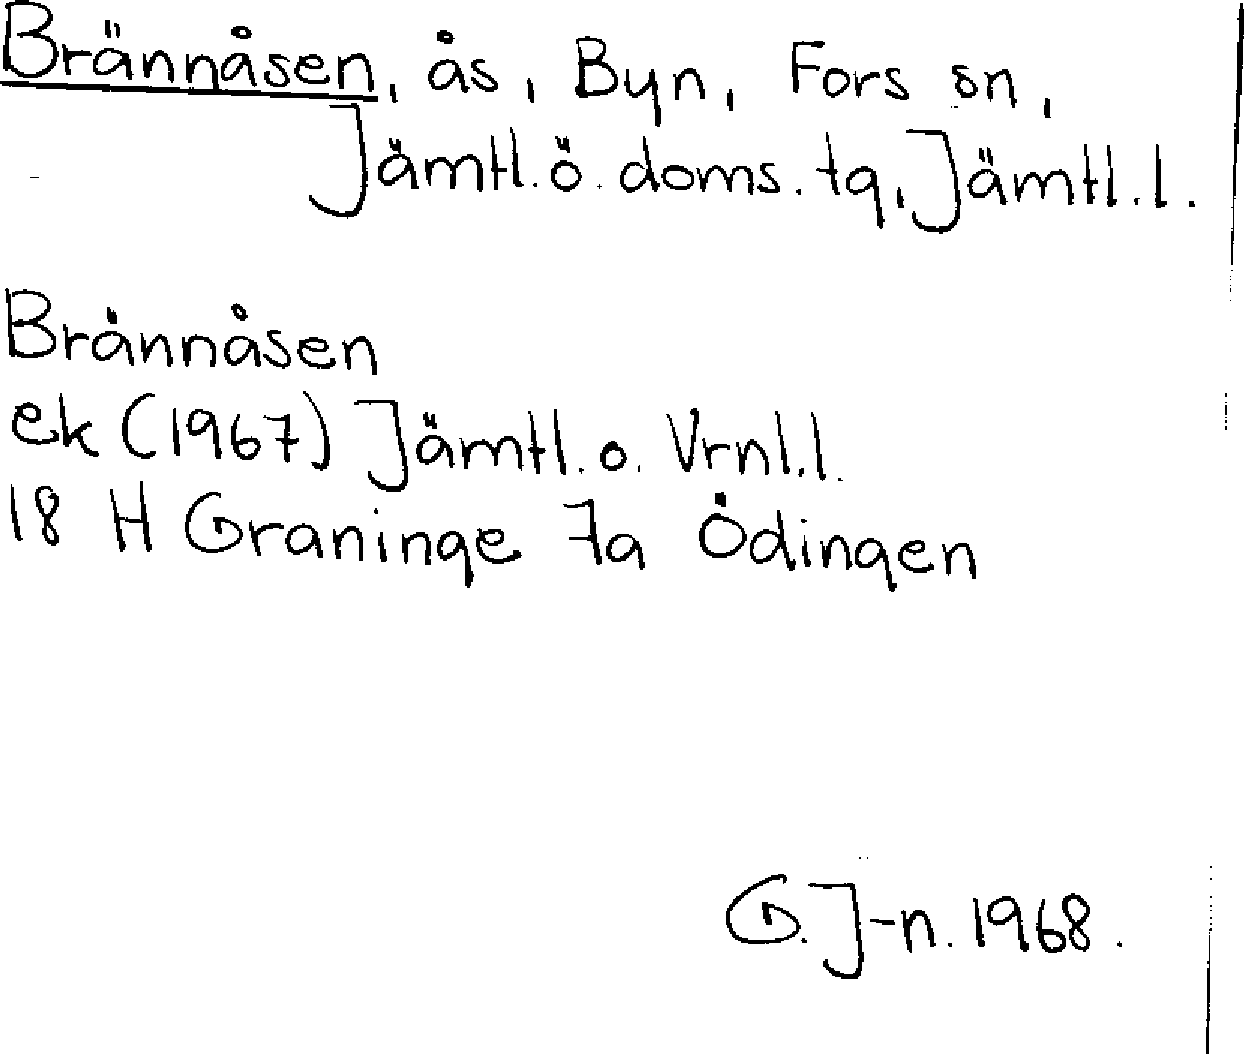 Brännåsen, ås, Byn, Fors sn,
Jämtl.ö.doms.tg, Jämtl.l.
Brännåsen
ek (1967) Jämtl.o. Vrnl.l.
18 H Graninge 7a Ödingen
G.J-n. 1968.